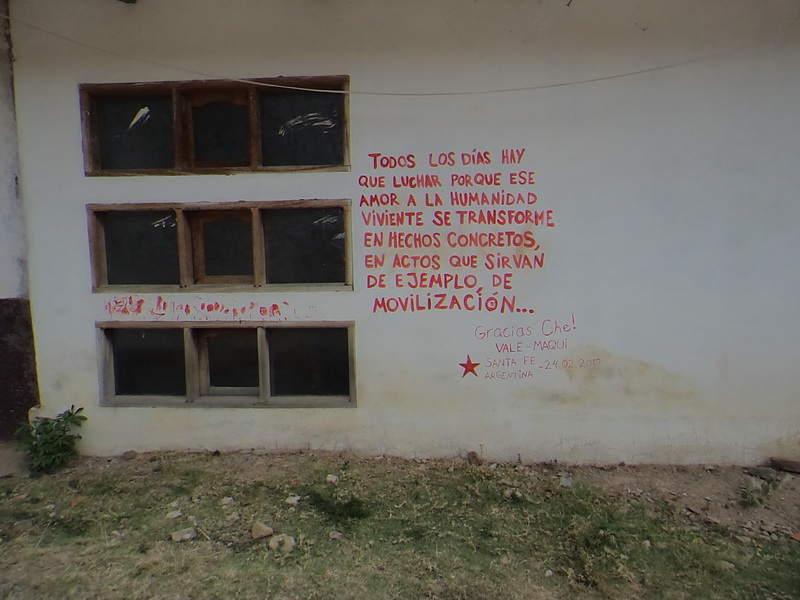 TODOS LOS DÍAS HAY
QUE LUCHAR PORQUE ESE
AMOR A LA HUMANIDAD
VIVIENTE SE TRANSFORME
EN HECHOS CONCRETOS,
EN ACTOS QUE SIRVAN
DE EJEMPLO, DE
MOVILIZACIÓN...
Gracias Che!
VALE - MAQUI
SANTA FE
ARGENTINA